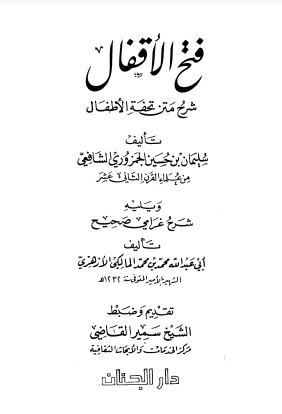 فتح الأقفال
شرح متن تحفة الأطفال
تأليف
سليمان بن حسين الجمزوري الشافعي
من علماء القرن الثاني عشر
ويليه
شرح غرامي صحيح
تأليف
أبي عبد الله محمد بن محمد المالكي الأزهري
الشهير بالأمير المتوفى سنة ١٢٣٢هـ
تقديم وضبط
الشيخ سمير القاضي
مركز الخدمات والأبحاث الثقافية
دار الجنان